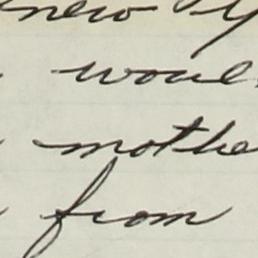 new Y
woul
mothe
from